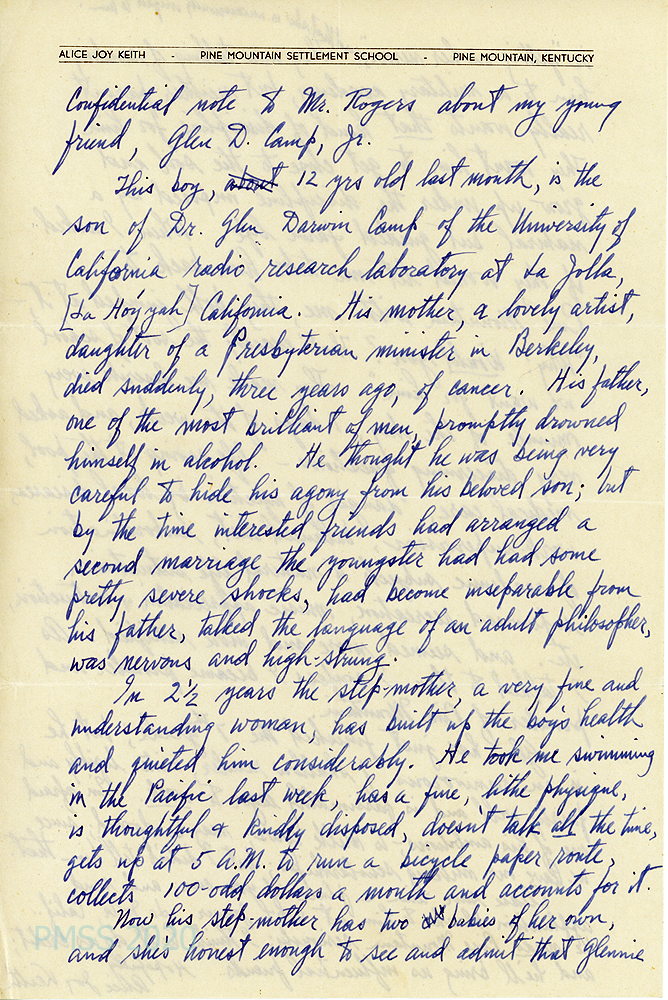 ALICE JOY KEITH - PINE MOUNTAIN SETTLEMENT SCHOOL - PINE MOUNTAIN, KENTUCKY
Confidential note to Mr. Rogers about my young
friend, Glen D. Camp, Jr.
This boy, about 12 yrs old last month, is the
son of Dr. Glen Darwin Camp of the University of
California radio research laboratory at La Jolla,
[La Hoy´yah] California. His mother, a lovely artist,
daughter of a Presbyterian minister in Berkeley,
died suddenly, three years ago, of cancer. His father,
one of the most brilliant of men, promptly drowned
himself in alcohol. He thought he was being very
careful to hide his agony from his beloved son; but
by the time interested friends had arranged a
second marriage the youngster had had some
pretty severe shocks, had become inseparable from
his father, talked the language of an adult philosopher,
was nervous and high-strung.
In 2½ years the step-mother, a very fine and
understanding woman, has built up the boy's health
and quieted him considerably. He took me swimming
in the Pacific last week, has a fine, lithe physique,
is thoughtful & kindly disposed, doesn't talk all the time,
gets up at 5 A.M. to run a bicycle paper route,
collects 100-odd dollars a month and accounts for it.
Now his step-mother has two babies of her own,
and she's honest enough to see and admit that Glennie
PMSS 2020